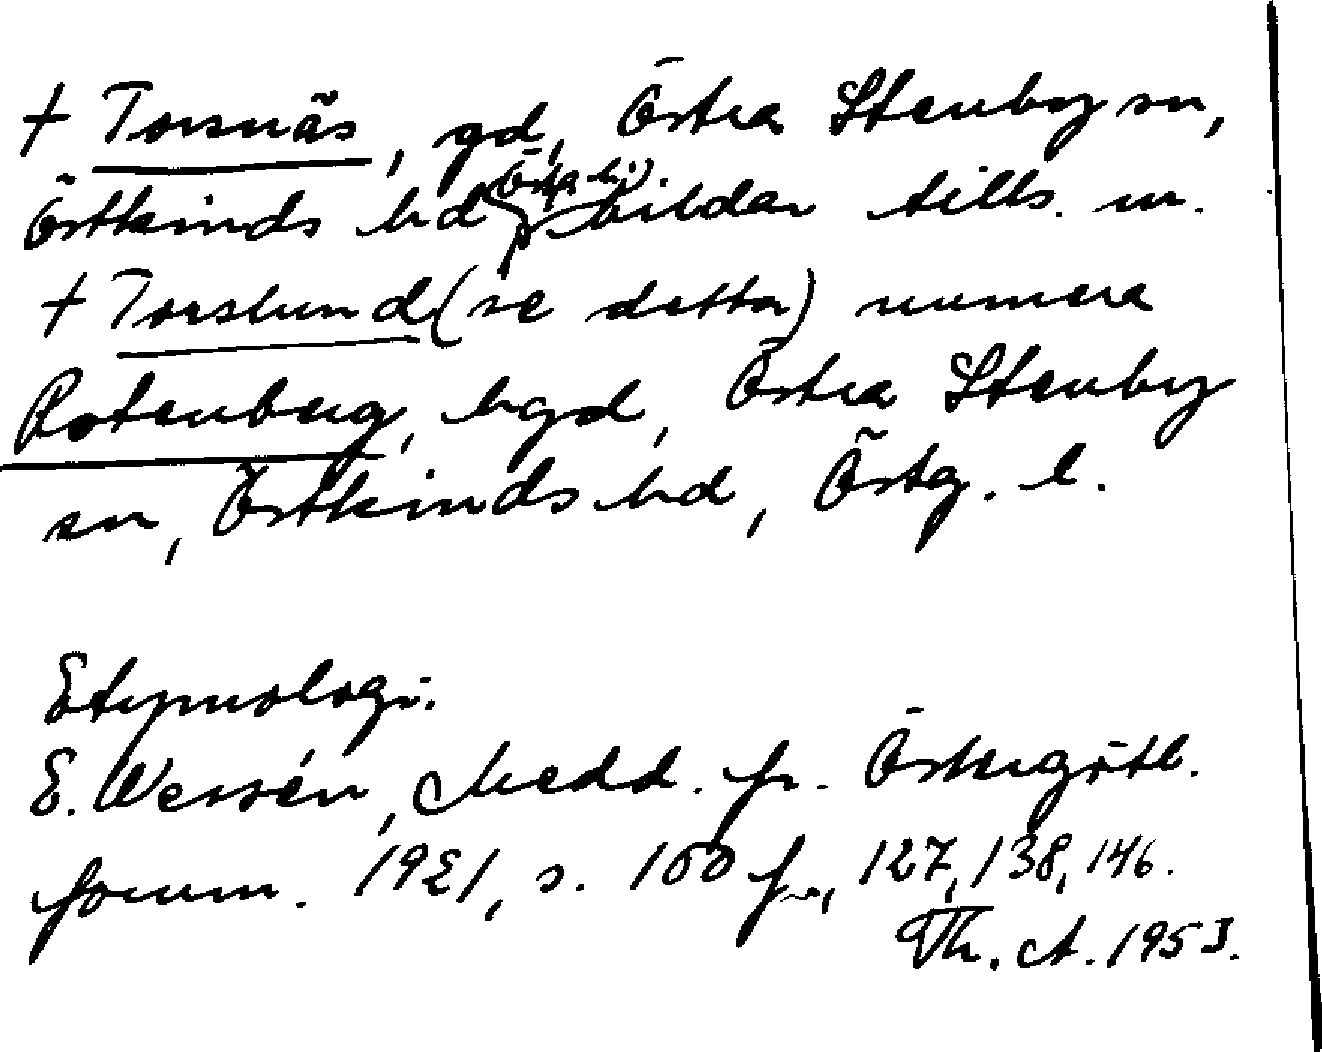 + Torsnäs, gd, Östra Stenby sn,
Östkinds hd (Östg. l.) bildar tills. m.
+ Torslund (se detta) numera
Rotenberg, hgd, Östra Stenby
sn, Östkinds hd, Östg. l.
Etymologi.
E. Wessén, Medd. fr. Östergötl.
fornm. 1921, s. 100 f., 127, 138, 146.
Th. A. 1953.